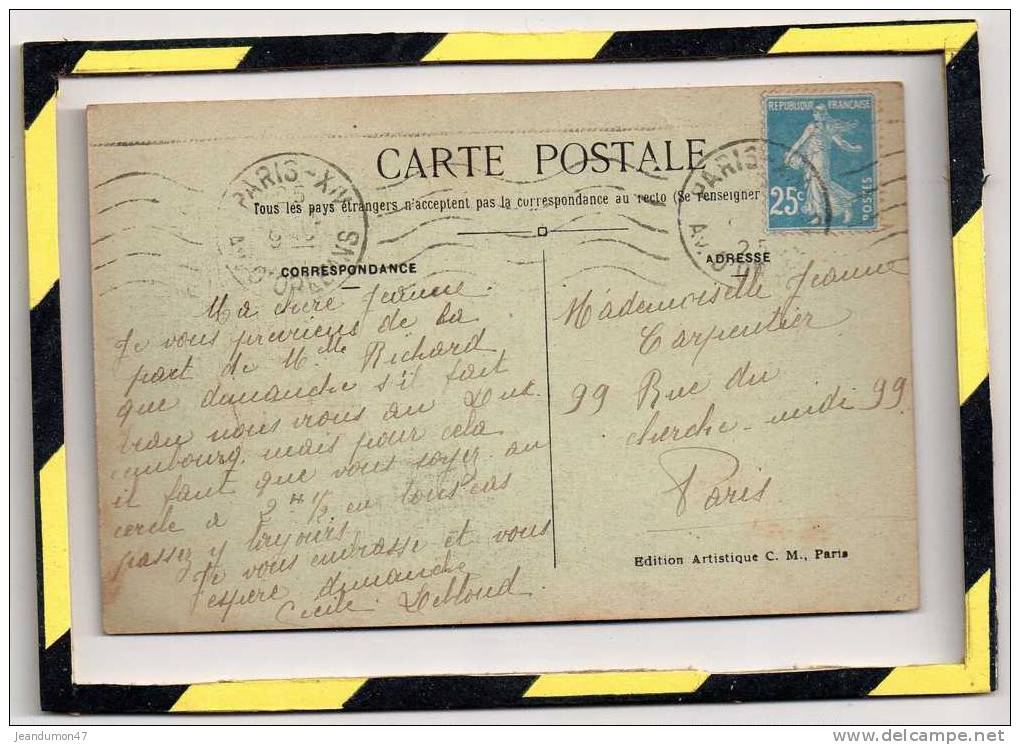 CARTE POSTALE
Tous les pays étrangers n'acceptent pas la correspondance au recto (Se renseigner
REPUBLIQUE FRANÇAISE
25c
POSTES
PARIS-XIV
5
AV. D'ORLEANS
PARIS
25
AV. D'OR
CORRESPONDANCE
Ma chère Jeanne.
Je vous previens de la
part de Mlle Richard
que dimanche s'il fait
beau nous irons au Lux
embourg. mais pour cela
il faut que vous soyez au
cercle a 2 H ½ en tous cas
passez y toujours
Je vous embrasse et vous
espere dimanche
Cecile
ADRESSE
Mademoiselle Jeanne
Carpentier
99 Rue du
cherche-midi 99
Paris
Edition Artistique C. M., Paris
jeandumon47
www.delcampe.net